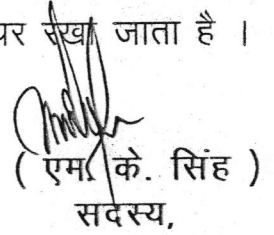 पर रखा जाता है ।
( एम. के. सिंह )
सदस्य,